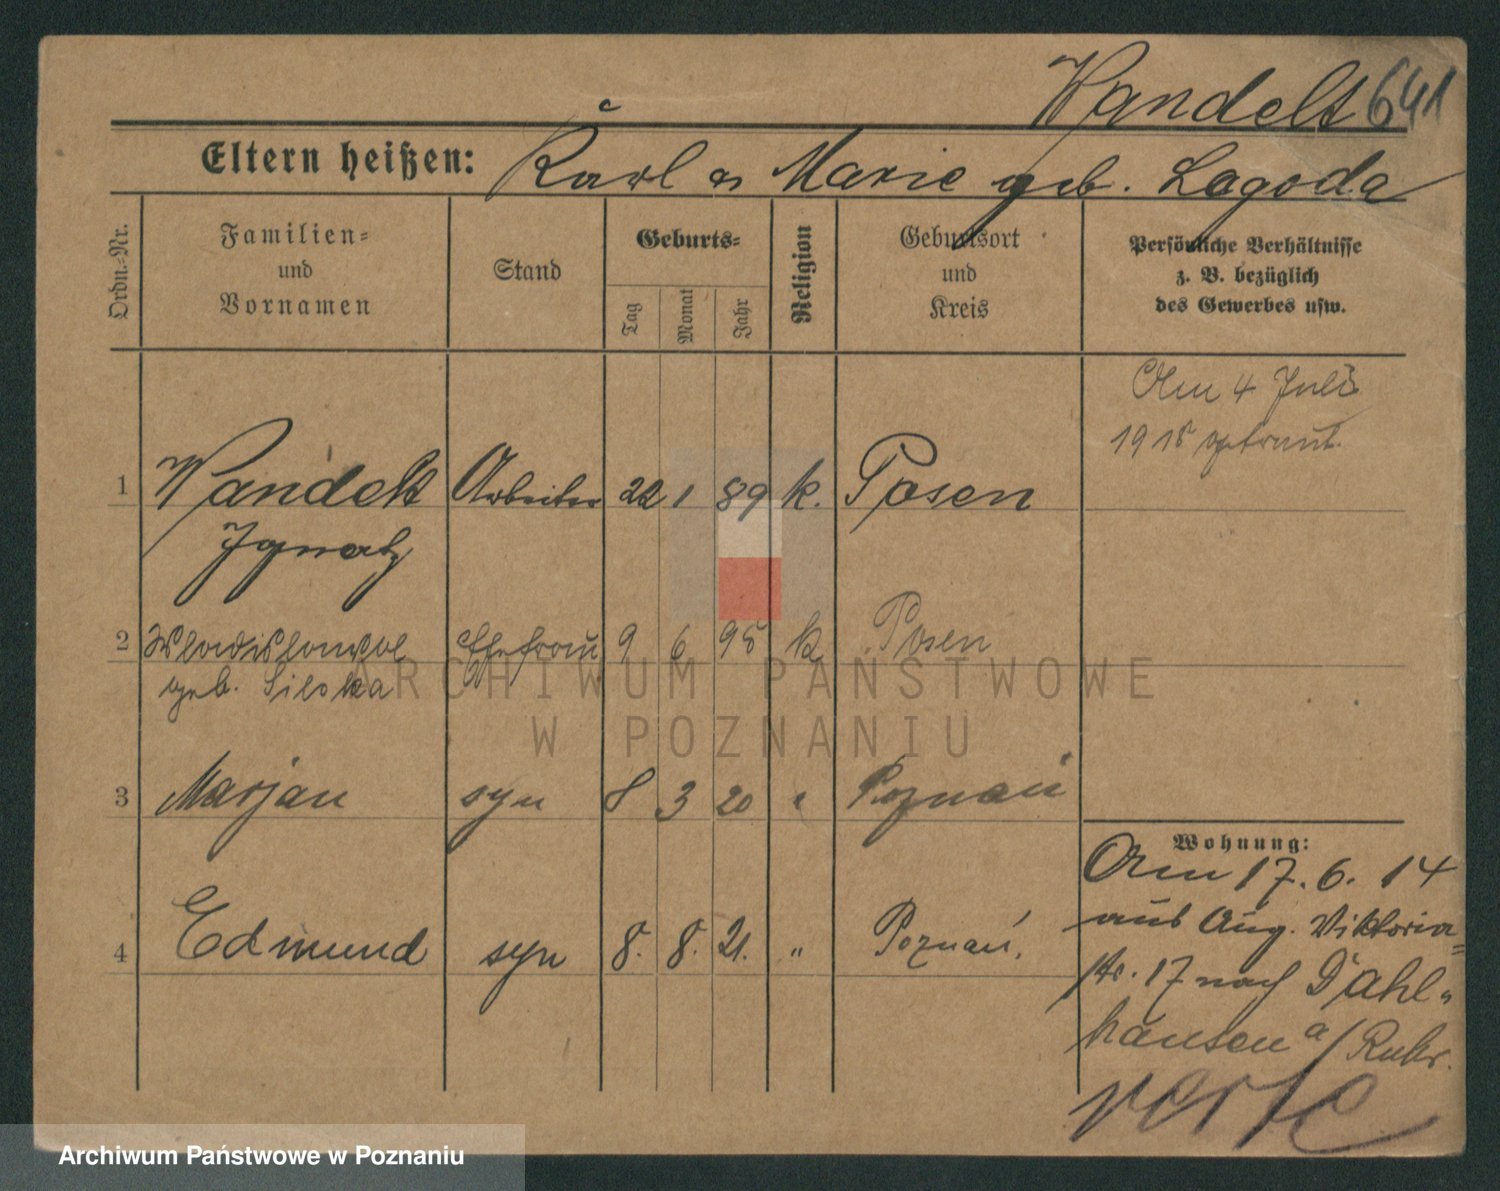 Wandelt 641
Eltern heißen: Karl u Marie geb. Lagoda
Ordn.-Nr.
Familien-
und
Vornamen
Stand
Geburts-
Tag
Monat
Jahr
Religion
Geburtsort
und
Kreis
Persönliche Verhältnisse
z. B. bezüglich
des Gewerbes usw.
Am 4 Juli
1918 getraut.
1 Wandelt Arbeiter 22 1 89 k. Posen
Ignatz
2 Wladislawa Ehefrau 9 6 95 k Posen
geb.
3 Marjan syn 8 3 20 " Poznań
4 Edmund syn 8. 8. 21. " Poznań.
Wohnung:
Am 17. 6. 14
aus Aug. Viktoria-
str. 17 nach Dahl-
hausen a/Ruhr.
verte
ARCHIWUM PAŃSTWOWE
W POZNANIU
Archiwum Państwowe w Poznaniu